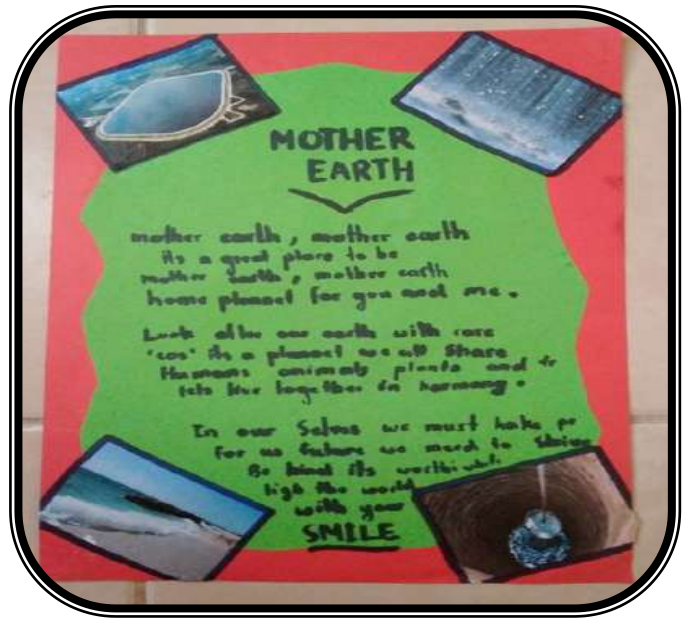 MOTHER
EARTH
mother earth, mother earth
its a great place to be
mother earth, mother earth
home planet for you and me.
Look after our earth with care
'cos' its a planet we all Share
Humans animals plants and tr
lets live together in harmony.
In our Selves we must take pr
for us future we need to Strive
Be kind its worthwhile
ligh the world
with your
SMILE